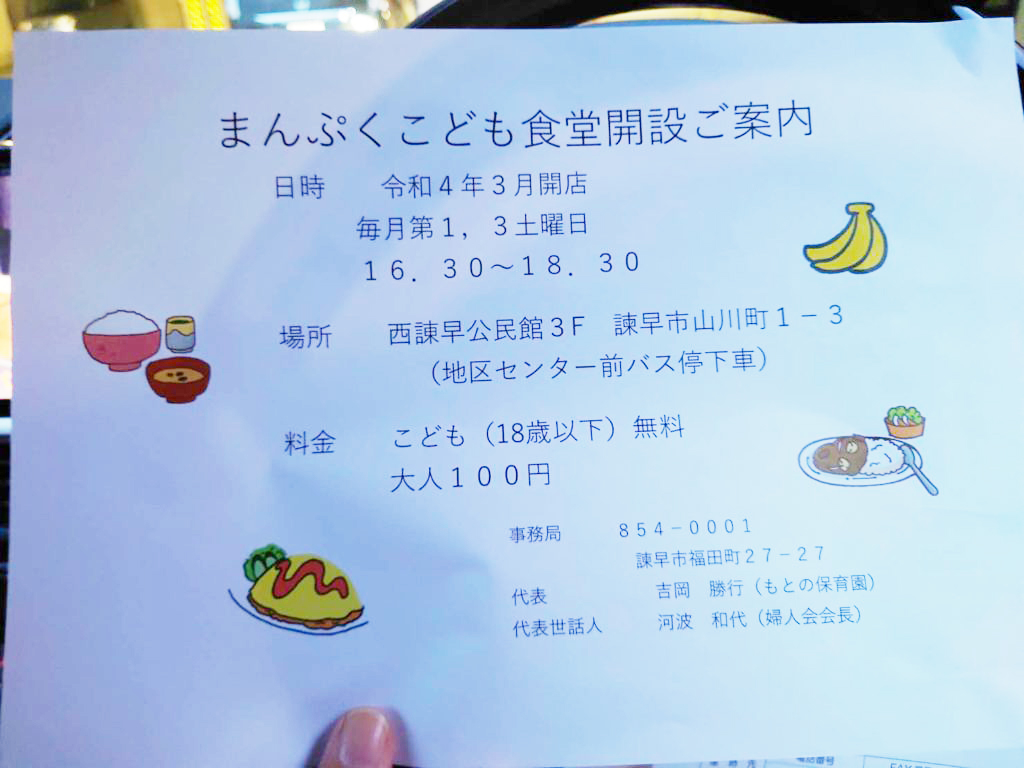 まんぷくこども食堂開設ご案内
日時　令和４年３月開店
毎月第１，３土曜日
１６．３０～１８．３０
場所　西諫早公民館３F　諫早市山川町１－３
（地区センター前バス停下車）
料金　こども（18歳以下）無料
大人１００円
事務局　８５４－０００１
諫早市福田町２７－２７
代表　吉岡　勝行（もとの保育園）
代表世話人　河波　和代（婦人会会長）